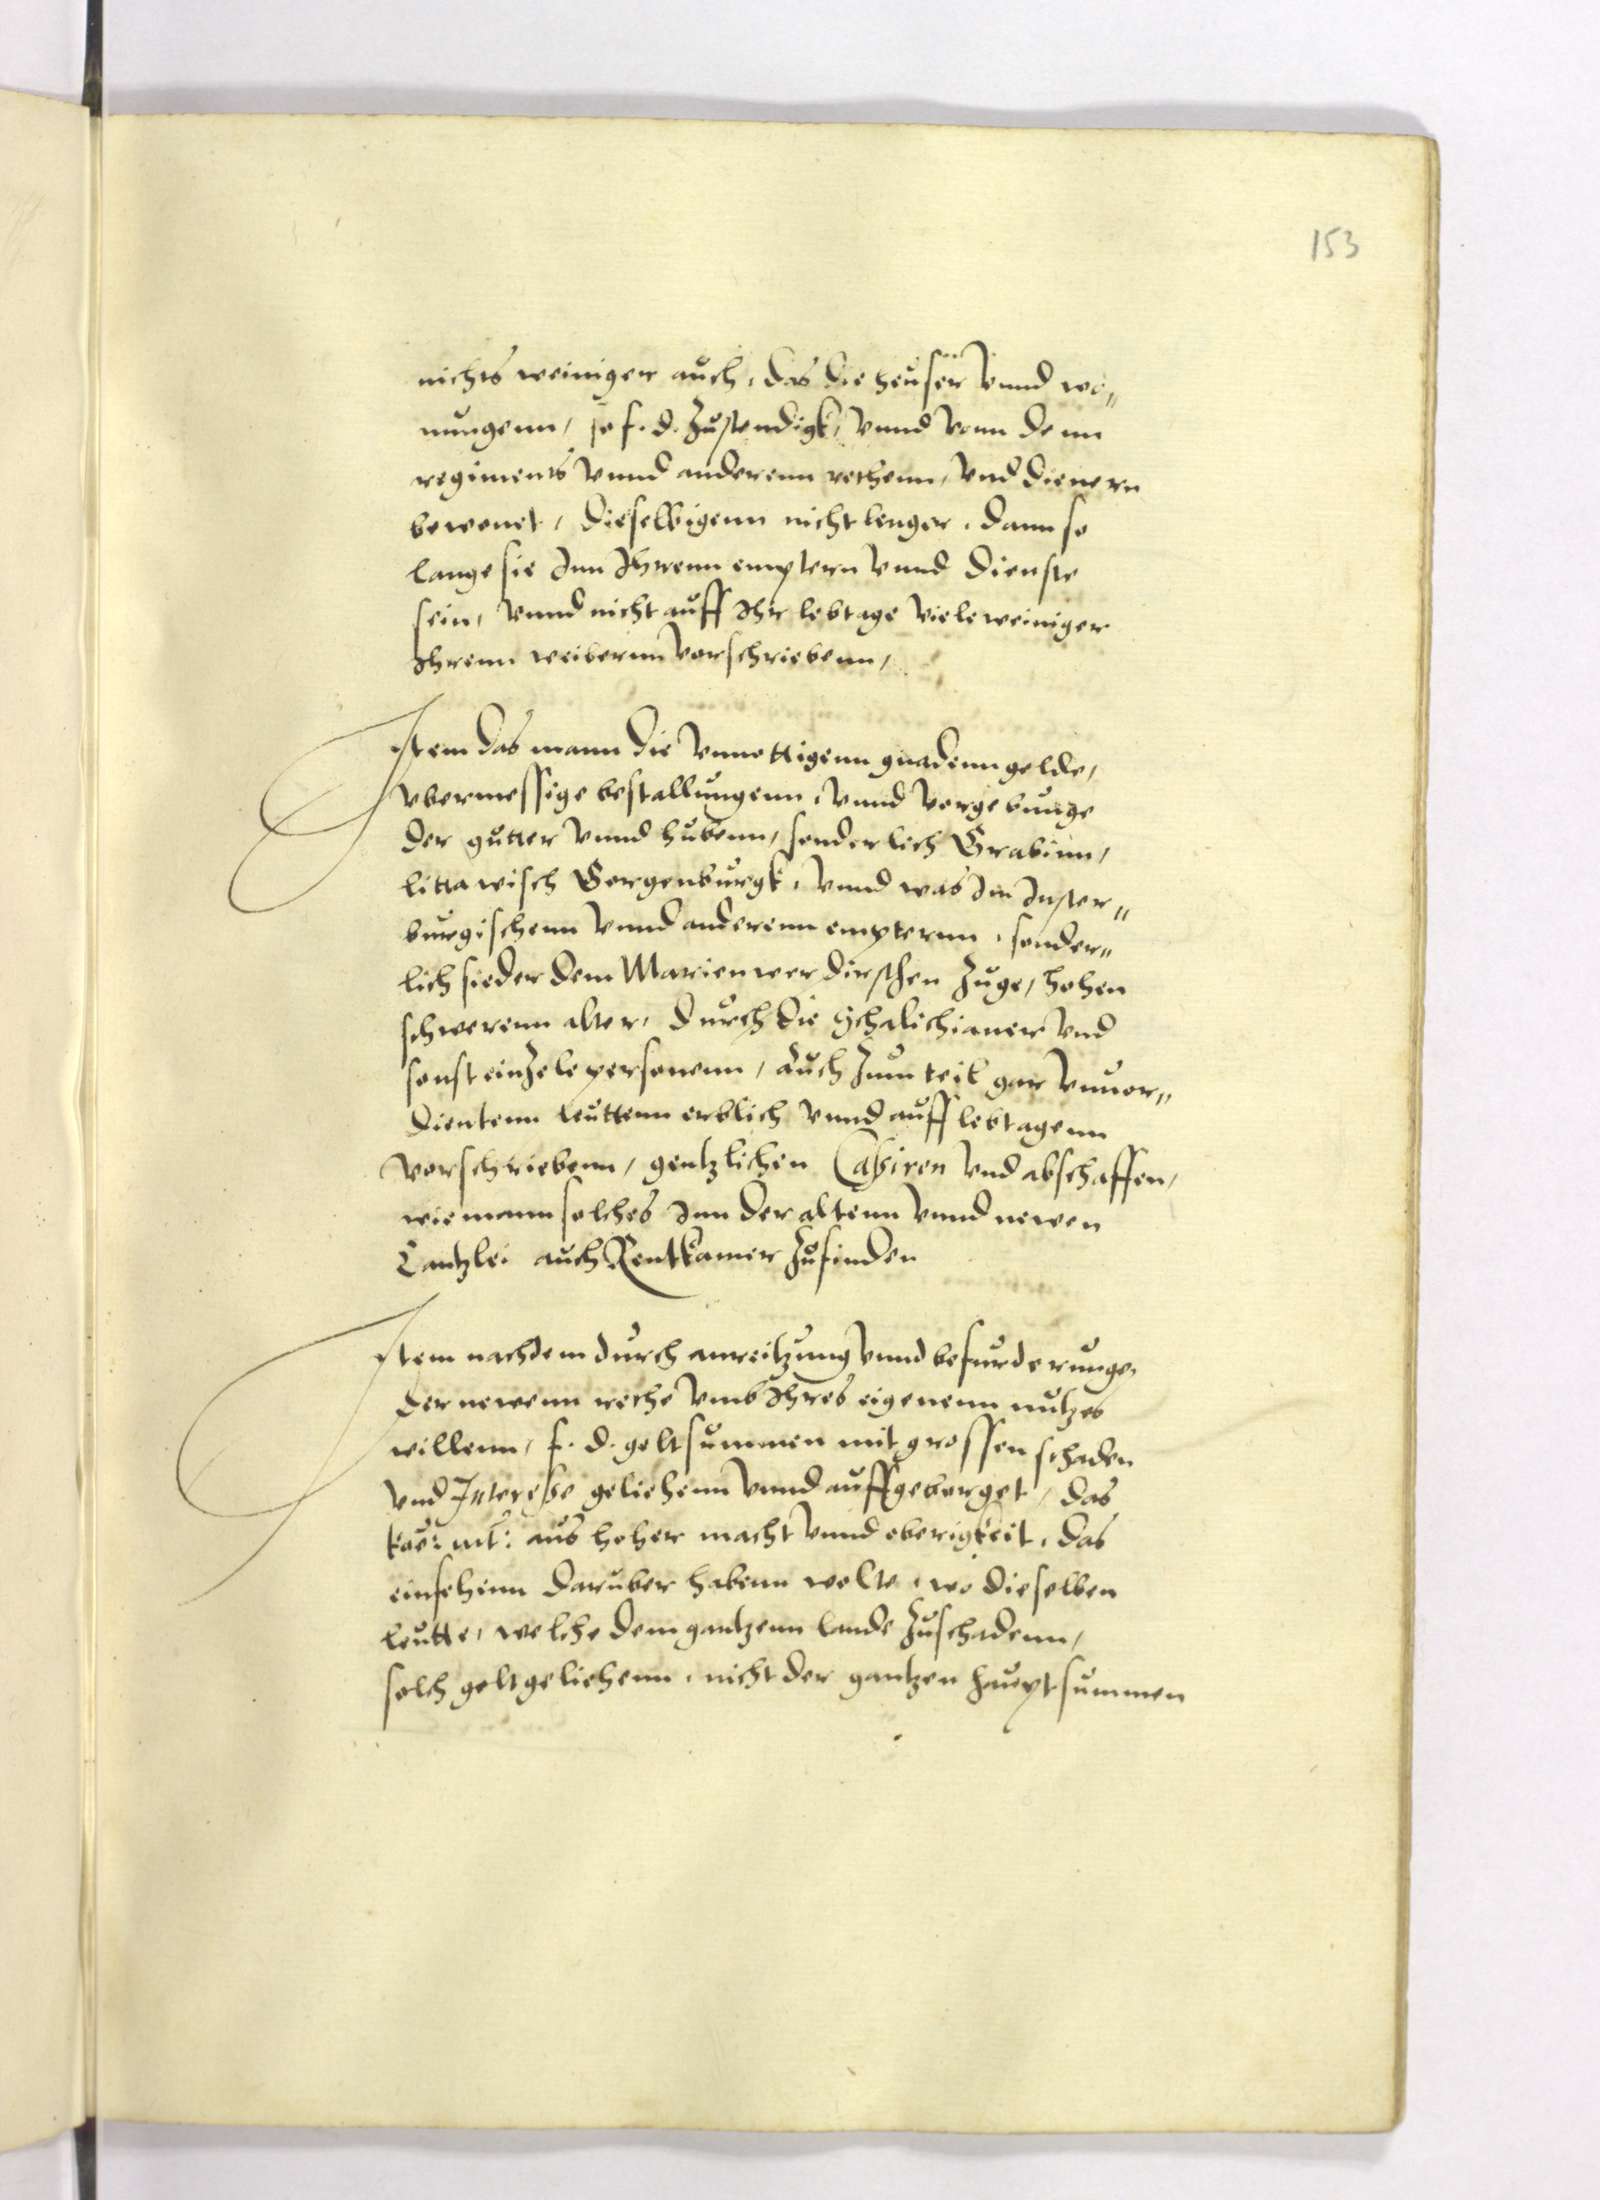 153
nichts weiniger auch, das die heuser vnnd wo„
nungenn, so f. d. zustendigk, vnnd vonn denn
regiments vnnd anderenn rethenn, vnd dienern
bewonet, dieselbigenn nicht lenger, dann so
lange sie Inn Ihrenn emptern vnnd dienste
sein, vnnd nicht auff Ihr lebtage viele weiniger
Ihrenn weibernn vorschriebenn,
Item das mann die vnnottigenn gnadenngelde,
vbermessige bestallungenn, vnnd vorgebunge
der gutter vnnd hubenn, sonderlich Grabinn,
littawisch Gorgenburgk, vnnd was Inn Inster„
burgischenn vnnd anderenn empternn, sonder„
lich sieder dem Marienwerdirschen zuge, hohen
schwerenn alter, durch die Schalichianer vnd
sonst einzele personenn, auch zum teil gar vnuor„
dientenn leuttenn erblich vnnd auff lebtagenn
vorschriebenn, gentzlichen Caßiren vnd abschaffen,
wie mann solches Inn der altenn vnnd newen
Cantzlei auch Rentkamer zufinden
Item nachdem durch anreitzung vnnd befurderunge,
der newenn rethe vmb Ihres eigenenn nutzes
willenn, f. d. geltsummen mit grossen schaden
vnd Intereße geliehenn vnnd auffgeborget, das
koe: mt: aus hoher macht vnnd oberigkeit, das
einsehinn daruber habenn wolte, wo dieselben
leutte, welche dem gantzenn lande zuschadenn,
solch gelt geliehenn, nicht der gantzen hauptsummen